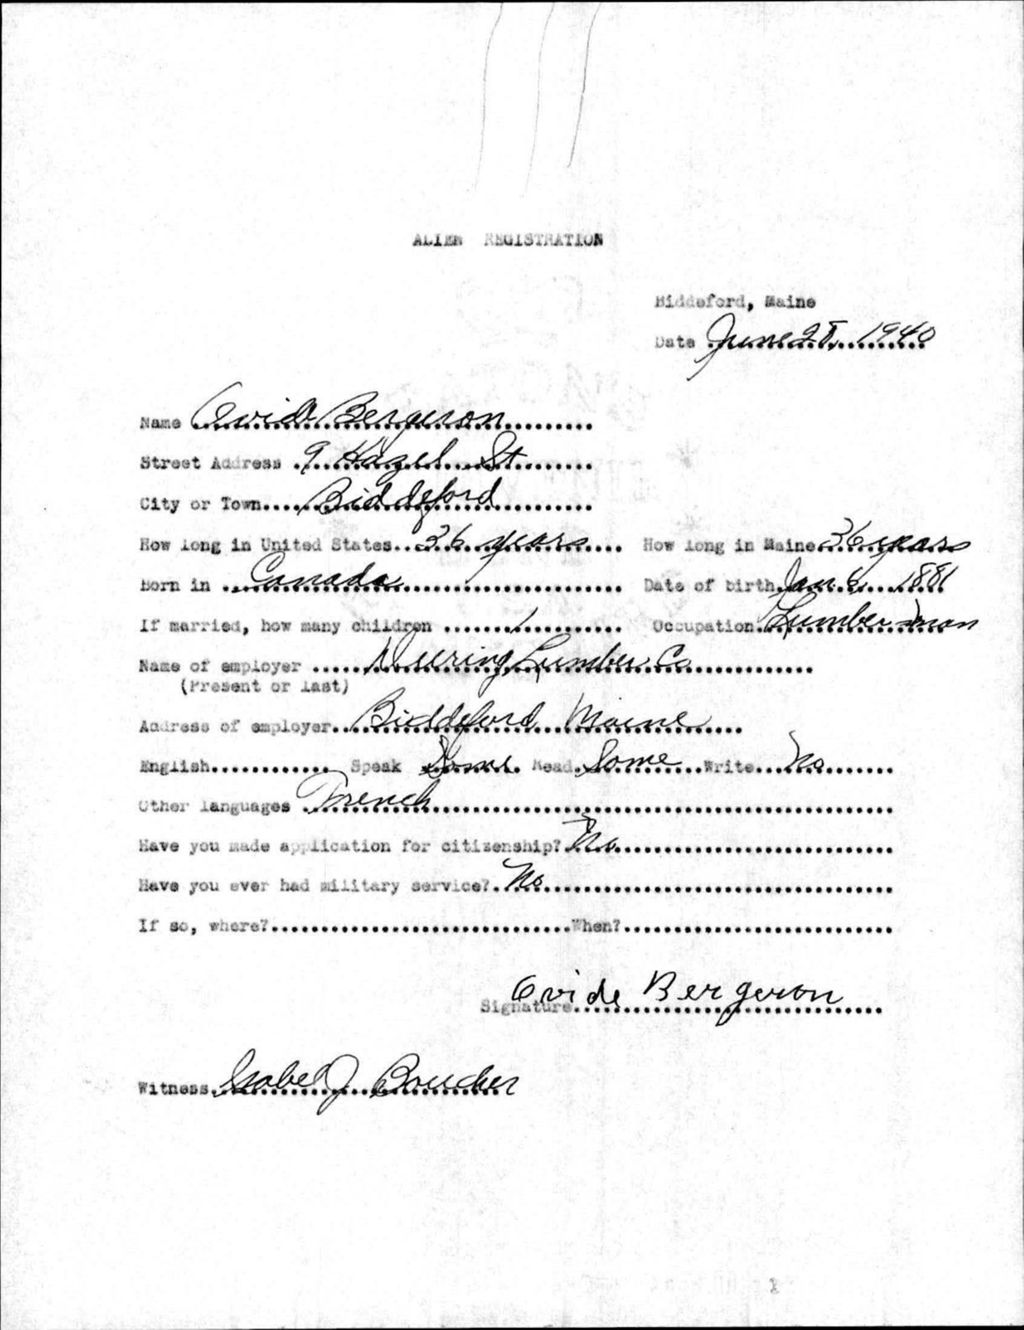 ALIEN REGISTRATION
Biddeford, Maine
Date June 28, 1940
Name Ovide Bergeron
Street Address 9 Hazel St
City or Town Biddeford
How long in United States 36 years How long in Maine 36 years
Born in Canada Date of birth Jan. 1881
If married, how many children 1 Occupation Lumber man
Name of employer Deering Lumber Co
(Present or last)
Address of employer Biddeford Maine
English Speak Some Read Some Write No
Other languages French
Have you made application for citizenship? No
Have you ever had military service? No
If so, where? When?
Signature Ovide Bergeron
Witness Isabel J Boucher